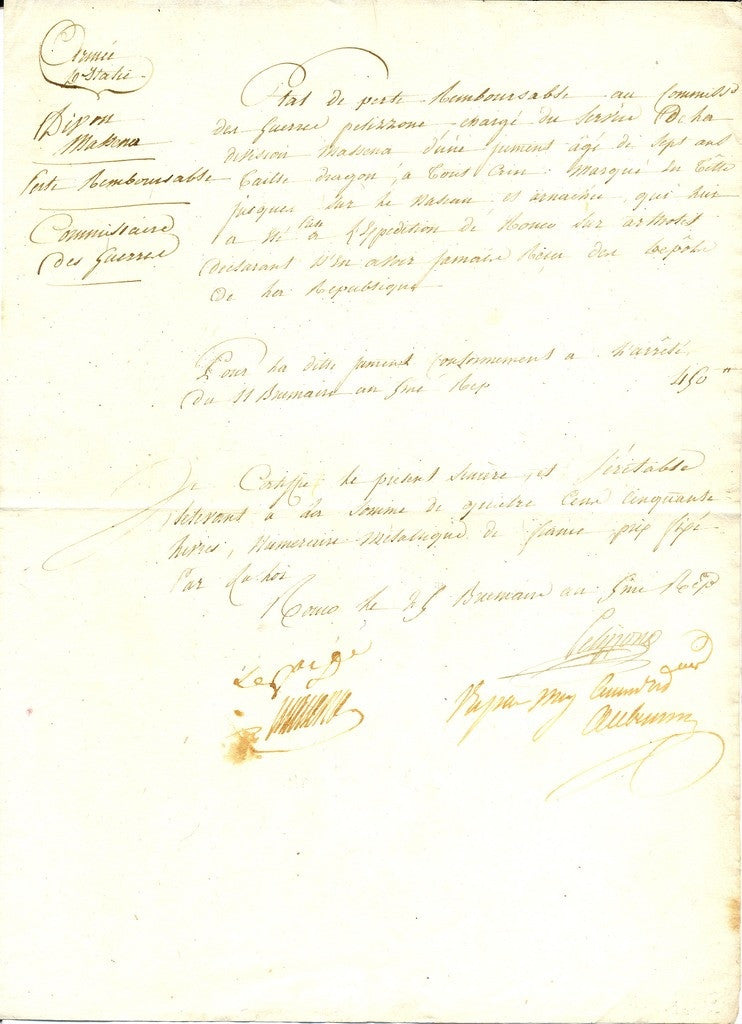 Armée
d'Italie
Dion
Massena
Perte Remboursable
Commissaire
des Guerres
Etat de perte Remboursable au Commiss
des Guerres pelizzone chargé du Service De La
division Massena d'une jument agé de Sept ans
Taille dragon, a Tout Crin Marqué en Tête
jusques Sur le Naseau et arnachée, qui lui
a été à L'Expedition de Ronco Sur
declarant N'en avoir jamais Reçu des Depôts
De La Republique
Pour La ditte jument Conformement a L'arrêté
Du 11 Brumaire an 5me Rep 450"
Je Certiffie le présent Sincère, et Véritable
s'elevant à La Somme de quatre Cent Cinquante
Livres, Numeraire Metallique de france prix fixé
Par La Loi
Ronco le 25 Brumaire an 5me Rep
Pelizzone
Vu par moy
Massena